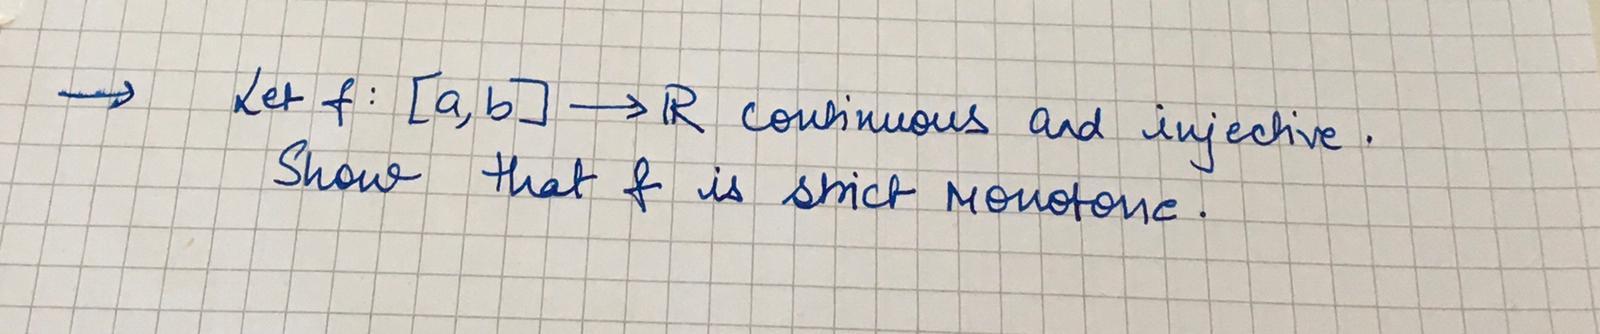 → Let f: [a,b] → ℝ continuous and injective.
Show that f is strict monotone.